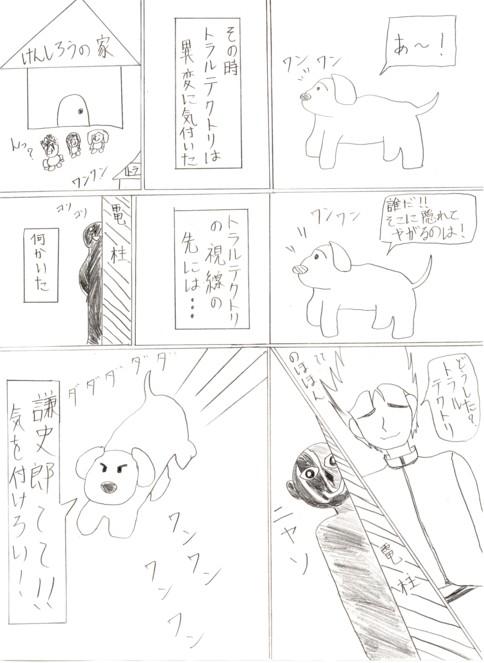 あ～！
ワンワン
その時
トラルテクトリは
異変に気付いた
けんしろうの家
んっ？
トラ
ワンワン
誰だ！！
そこに隠れて
やがるのは！
ワンワン
トラルテクトリ
の視線の
先には…
電柱
ゴソゴソ
何かいた
どうした？
トラル
テクトリ
のほほん
電柱
ニヤソ
ダダダダダ
謙史郎てて！！
気を付けろい！
ワンワン
ワンワン